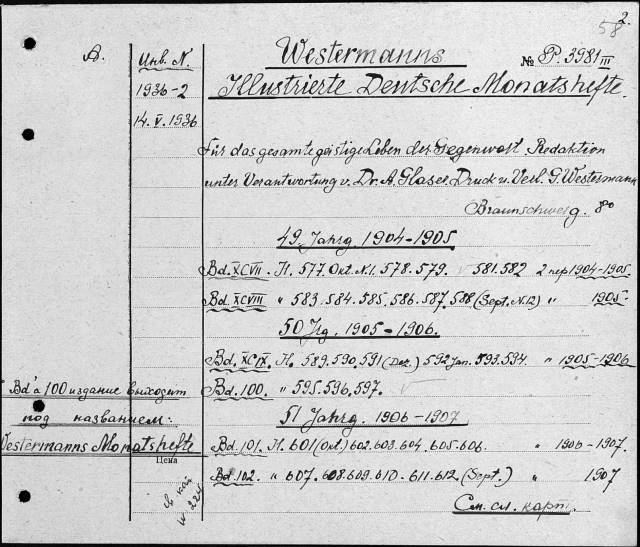 2.
58
А.
Инв. N.
1936-2
14.V.1936
Westermanns № P. 3981 III
Illustrierte Deutsche Monatshefte.
Für das gesamte geistige Leben der Gegenwart. Redaktion
unter Verantwortung v. Dr. A. Glaser. Druck u. Verl. G. Westermann
Braunschweig. 8°
49 Jahrg 1904-1905
Bd. XCVII. H. 577. Okt. N.1. 578. 579. 581.582 2 пер 1904-1905.
Bd. XCVIII " 583. 584. 585. 586. 587. 588 (Sept. N.12) " 1905.
50 Jrg. 1905-1906.
Bd. XCIX. H. 589. 590. 591 (Dez.) 592 Jan. 593. 594. " 1905-1906
Bd. 100. " 595. 596. 597.
51 Jahrg. 1906-1907
Bd. 101. H. 601 (Okt.) 602. 603. 604. 605. 606. " 1906-1907.
Bd. 102. " 607. 608. 609. 610. 611. 612 (Sept.) " 1907
См. сл. карт.
Bd'a 100 издание выходит
под названием:
Westermanns Monatshefte
Цена
W. 224